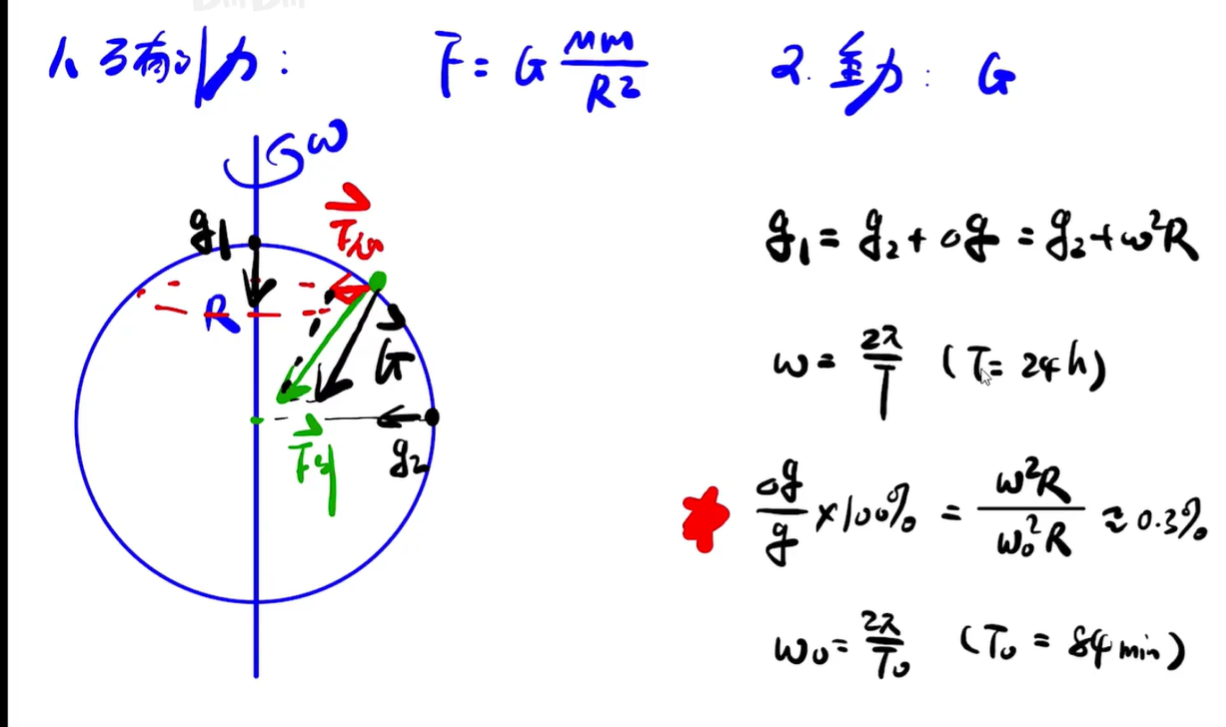 1. 万有引力: F = G Mm/R²
2. 重力: G
ω
g₁
F向
R
G
F引
g₂
g₁ = g₂ + △g = g₂ + ω²R
ω = 2π/T (T = 24h)
△g/g × 100% = ω²R/ω₀²R ≈ 0.3%
ω₀ = 2π/T₀ (T₀ = 84min)